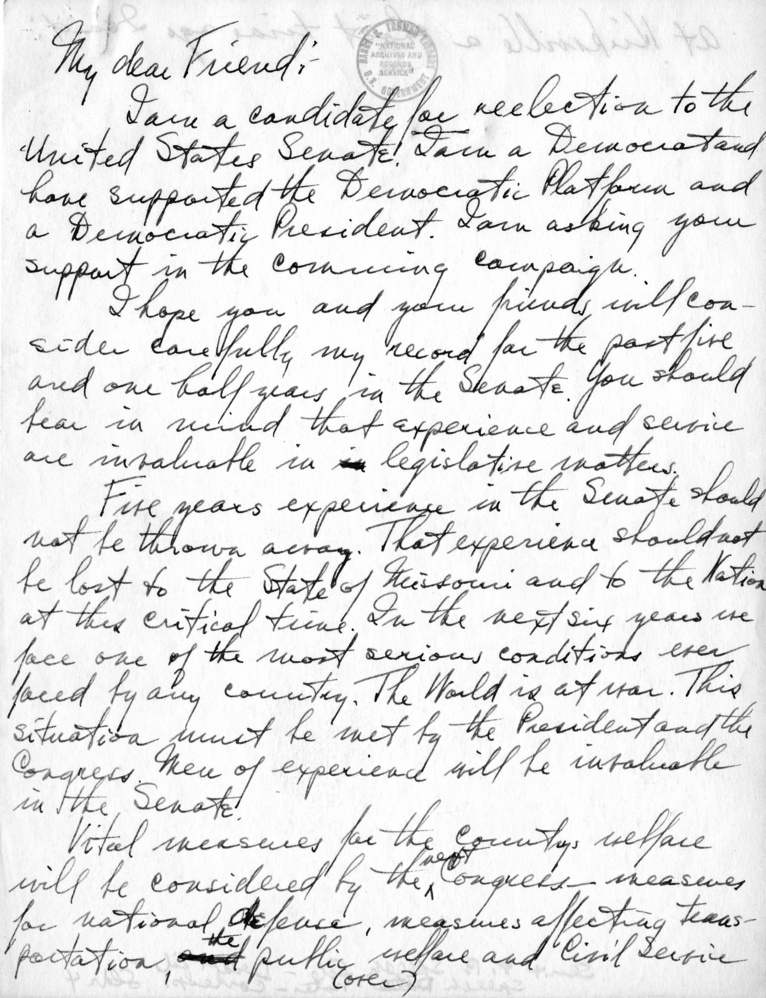 My dear Friend:-
HARRY S. TRUMAN LIBRARY
"NATIONAL
ARCHIVES AND
RECORDS
SERVICE"
U.S. GOVERNMENT
I am a candidate for reelection to the
United States Senate. I am a Democrat and
have supported the Democratic Platform and
a Democratic President. I am asking your
support in the comming campaign.
I hope you and your friends will con-
sider carefully my record for the past five
and one half years in the Senate. You should
bear in mind that experience and service
are invaluable in in legislative matters.
Five years experience in the Senate should
not be thrown away. That experience should not
be lost to the State of Missouri and to the Nation
at this critical time. In the next six years we
face one of the most serious conditions ever
faced by any country. The World is at war. This
situation must be met by the President and the
Congress. Men of experience will be invaluable
in the Senate.
Vital measures for the countys welfare
will be considered by the next Congress - measures
for national defense, measures affecting trans-
portation, and the public welfare and Civil Service
(over)